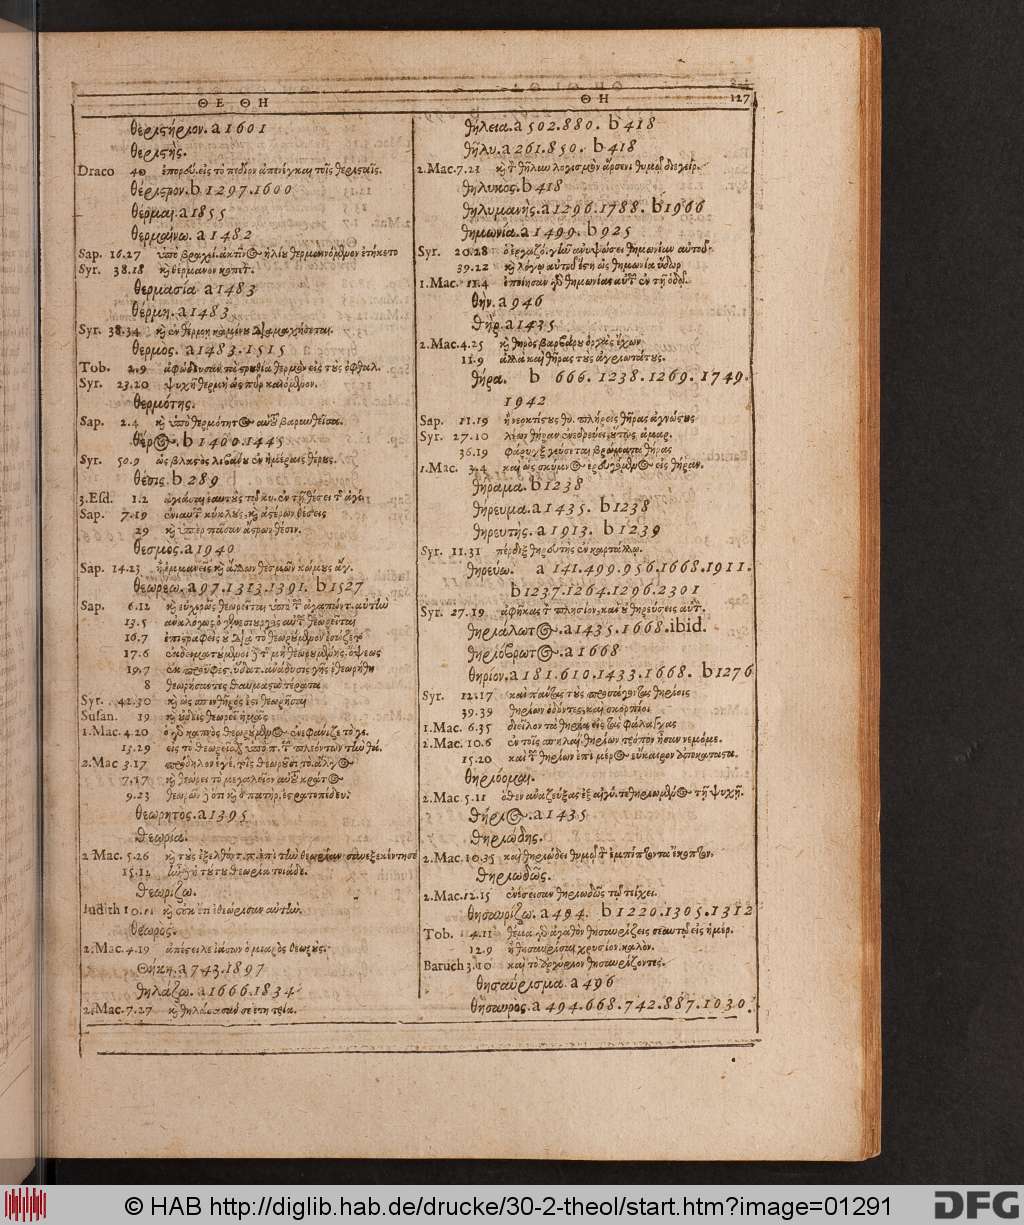 Θ Ε Θ Η
Θ Η
127
θεριστήριον. a 1601
θεριστής.
Draco 40 εἰς τὸ πεδίον ἀπενέγκαι τοῖς θερισταῖς.
θέριστρον. b 1297. 1600
θέρμαι. a 1855
θερμαίνω. a 1482
Sap. 16.27 ὑπὸ ἀκτῖνος ἡλίου θερμαινόμενον ἐτήκετο
Syr. 38.18
θερμασία a 1483
θέρμη. a 1483
Syr. 38.34 καὶ ἐν θέρμῃ καμίνου διαμαχήσεται.
θερμός. a 1483. 1515
Tob. 2.9 θερμὸν εἰς τοὺς ὀφθαλ.
Syr. 23.20 ψυχὴ θερμὴ ὡς πῦρ καιόμενον.
θερμότης.
Sap. 2.4 καὶ ὑπὸ θερμότητος αὐτοῦ βαρυνθεῖσα.
θέρος. b 1400. 1445
Syr. 50.9 ὡς βλαστὸς λιβάνου ἐν ἡμέραις θέρους.
θέσις. b 289
3.Esd. 1.2 ἐν τῇ θέσει
Sap. 7.19 ἐνιαυτοῦ κύκλους, καὶ ἀστέρων θέσεις
29 καὶ ὑπὲρ πᾶσαν ἄστρων θέσιν.
θεσμός. a 1940
Sap. 14.23 ἢ ἐμμανεῖς ἐξ ἄλλων θεσμῶν κώμους ἄγ.
θεωρέω. a 97. 1313. 1391. b 1527
Sap. 6.12 καὶ εὐχερῶς θεωρεῖται ὑπὸ τῶν ἀγαπώντ. αὐτὴν
13.5 ἀναλόγως ὁ γενεσιουργὸς αὐτῶν θεωρεῖται
16.7 ἐπιστραφεὶς οὐ διὰ τὸ θεωρούμενον ἐσώζετο
17.6 τῆς μὴ θεωρουμένης ὄψεως
19.7 ἀνάδυσις γῆς ἐθεωρήθη
8 θεωρήσαντες θαυμαστὰ τέρατα
Syr. 42.30 καὶ ὡς σπινθῆρός ἐστι θεωρῆσαι
Susan. 19 καὶ οὐδεὶς θεωρεῖ ἡμᾶς
1.Mac. 4.20 ὁ δὲ καπνὸς θεωρούμενος ἐνεφάνιζε τὸ γε.
13.29 εἰς τὸ θεωρεῖσθαι ὑπὸ π. τῶν πλεόντων τὴν θά.
2.Mac 3.17 τοῖς θεωροῦσι τὸ ἄλγος
7.17 καὶ θεώρει τὸ μεγαλεῖον αὐτοῦ κράτος
9.23
θεωρητός. a 1395
θεωρία.
2 Mac. 5.26 καὶ τοὺς ἐξελθόντ. π. ἐπὶ τὴν θεωρίαν συνεξεκέντησε
15.12 τούτου θεωρία τοιάδε.
θεωρίζω.
Judith 10.11
θεωρός.
2.Mac. 4.19 ἀπέστειλε Ἰάσων ὁ μιαρὸς θεωρούς.
Θήκη. a 743. 1897
θηλάζω. a 1666. 1834
2.Mac. 7.27 καὶ θηλάσασάν σε ἔτη τρία.
θήλεια. a 502. 880. b 418
θῆλυ. a 261. 850. b 418
2.Mac. 7.21 καὶ τὸν θῆλυν λογισμὸν ἄρσενι θυμῷ διεγείρ.
θηλυκός. b 418
θηλυμανής. a 1296. 1788. b 1966
θημωνία. a 1499. b 925
Syr. 20.28 ὁ ἐργαζό. γῆν ἀνυψώσει θημωνίαν αὐτοῦ
39.22 καὶ λόγῳ αὐτοῦ ἔστη ὡς θημωνία ὕδωρ
1.Mac. 11.4 ἐποίησαν γὰρ θημωνίας αὐτῶν ἐν τῇ ὁδῷ.
θήν. a 946
θήρ. a 1435
2.Mac. 4.25 θηρὸς βαρβάρου ὀργὰς ἔχων
11.9 ἀλλὰ καὶ θῆρας τοὺς ἀγριωτάτους.
θήρα. b 666. 1238. 1269. 1749.
1942
Sap. 11.19 ἢ νεοκτίστους θυ. πλήρεις θῆρας ἀγνώστους
Syr. 27.10 λέων θήραν ἐνεδρεύει, οὕτως ἁμαρ.
36.19 φάρυγξ γεύεται βρώματα θήρας
1.Mac. 3.4 καὶ ὡς σκύμνος ἐρευγόμενος εἰς θήραν.
θήραμα. b 1238
θήρευμα. a 1435. b 1238
θηρευτής. a 1913. b 1239
Syr. 11.31 πέρδιξ θηρευτὴς ἐν καρτάλλῳ.
θηρεύω. a 141. 499. 956. 1668. 1911.
b 1237. 1264. 1296. 2301
Syr. 27.19 ἀφῆκας τὸν πλησίον, καὶ οὐ θηρεύσεις αὐτ.
θηριάλωτος. a 1435. 1668. ibid.
θηριόβρωτος. a 1668
θηρίον. a 181. 610. 1433. 1668. b 1276
Syr. 12.17 καὶ πάντας τοὺς προσάγοντας θηρίοις
39.39 θηρίων ὀδόντες, καὶ σκορπίοι
1.Mac. 6.35 διεῖλον τὰ θηρία εἰς τὰς φάλαγγας
2.Mac. 10.6 ἐν τοῖς σπηλαί. θηρίων τρόπον ἦσαν νεμόμε.
15.20 καὶ τῶν θηρίων ἐπὶ μέρος εὔκαιρον ἀποκατασταθ.
θηριόομαι.
2.Mac. 5.11 ὅθεν ἀναζεύξας ἐξ αἰγύ. τεθηριωμένος τῇ ψυχῇ.
θῆρις. a 1435
θηριώδης.
2.Mac. 10.35 καὶ θηριώδει θυμῷ τὸν ἐμπίπτοντα ἔκοπτον.
θηριωδῶς.
2.Mac. 12.15 ἐνέσεισαν θηριωδῶς τῷ τείχει.
θησαυρίζω. a 494. b 1220. 1305. 1312
Tob. 4.11 θέμα γὰρ ἀγαθὸν θησαυρίζεις σεαυτῷ εἰς ἡμέρ.
12.9 ἢ θησαυρίσαι χρυσίον. καλὸν.
Baruch 3.10 καὶ τὸ ἀργύριον θησαυρίζοντες.
θησαύρισμα. a 496
θησαυρός. a 494. 668. 742. 887. 1030.
© HAB http://diglib.hab.de/drucke/30-2-theol/start.htm?image=01291
DFG